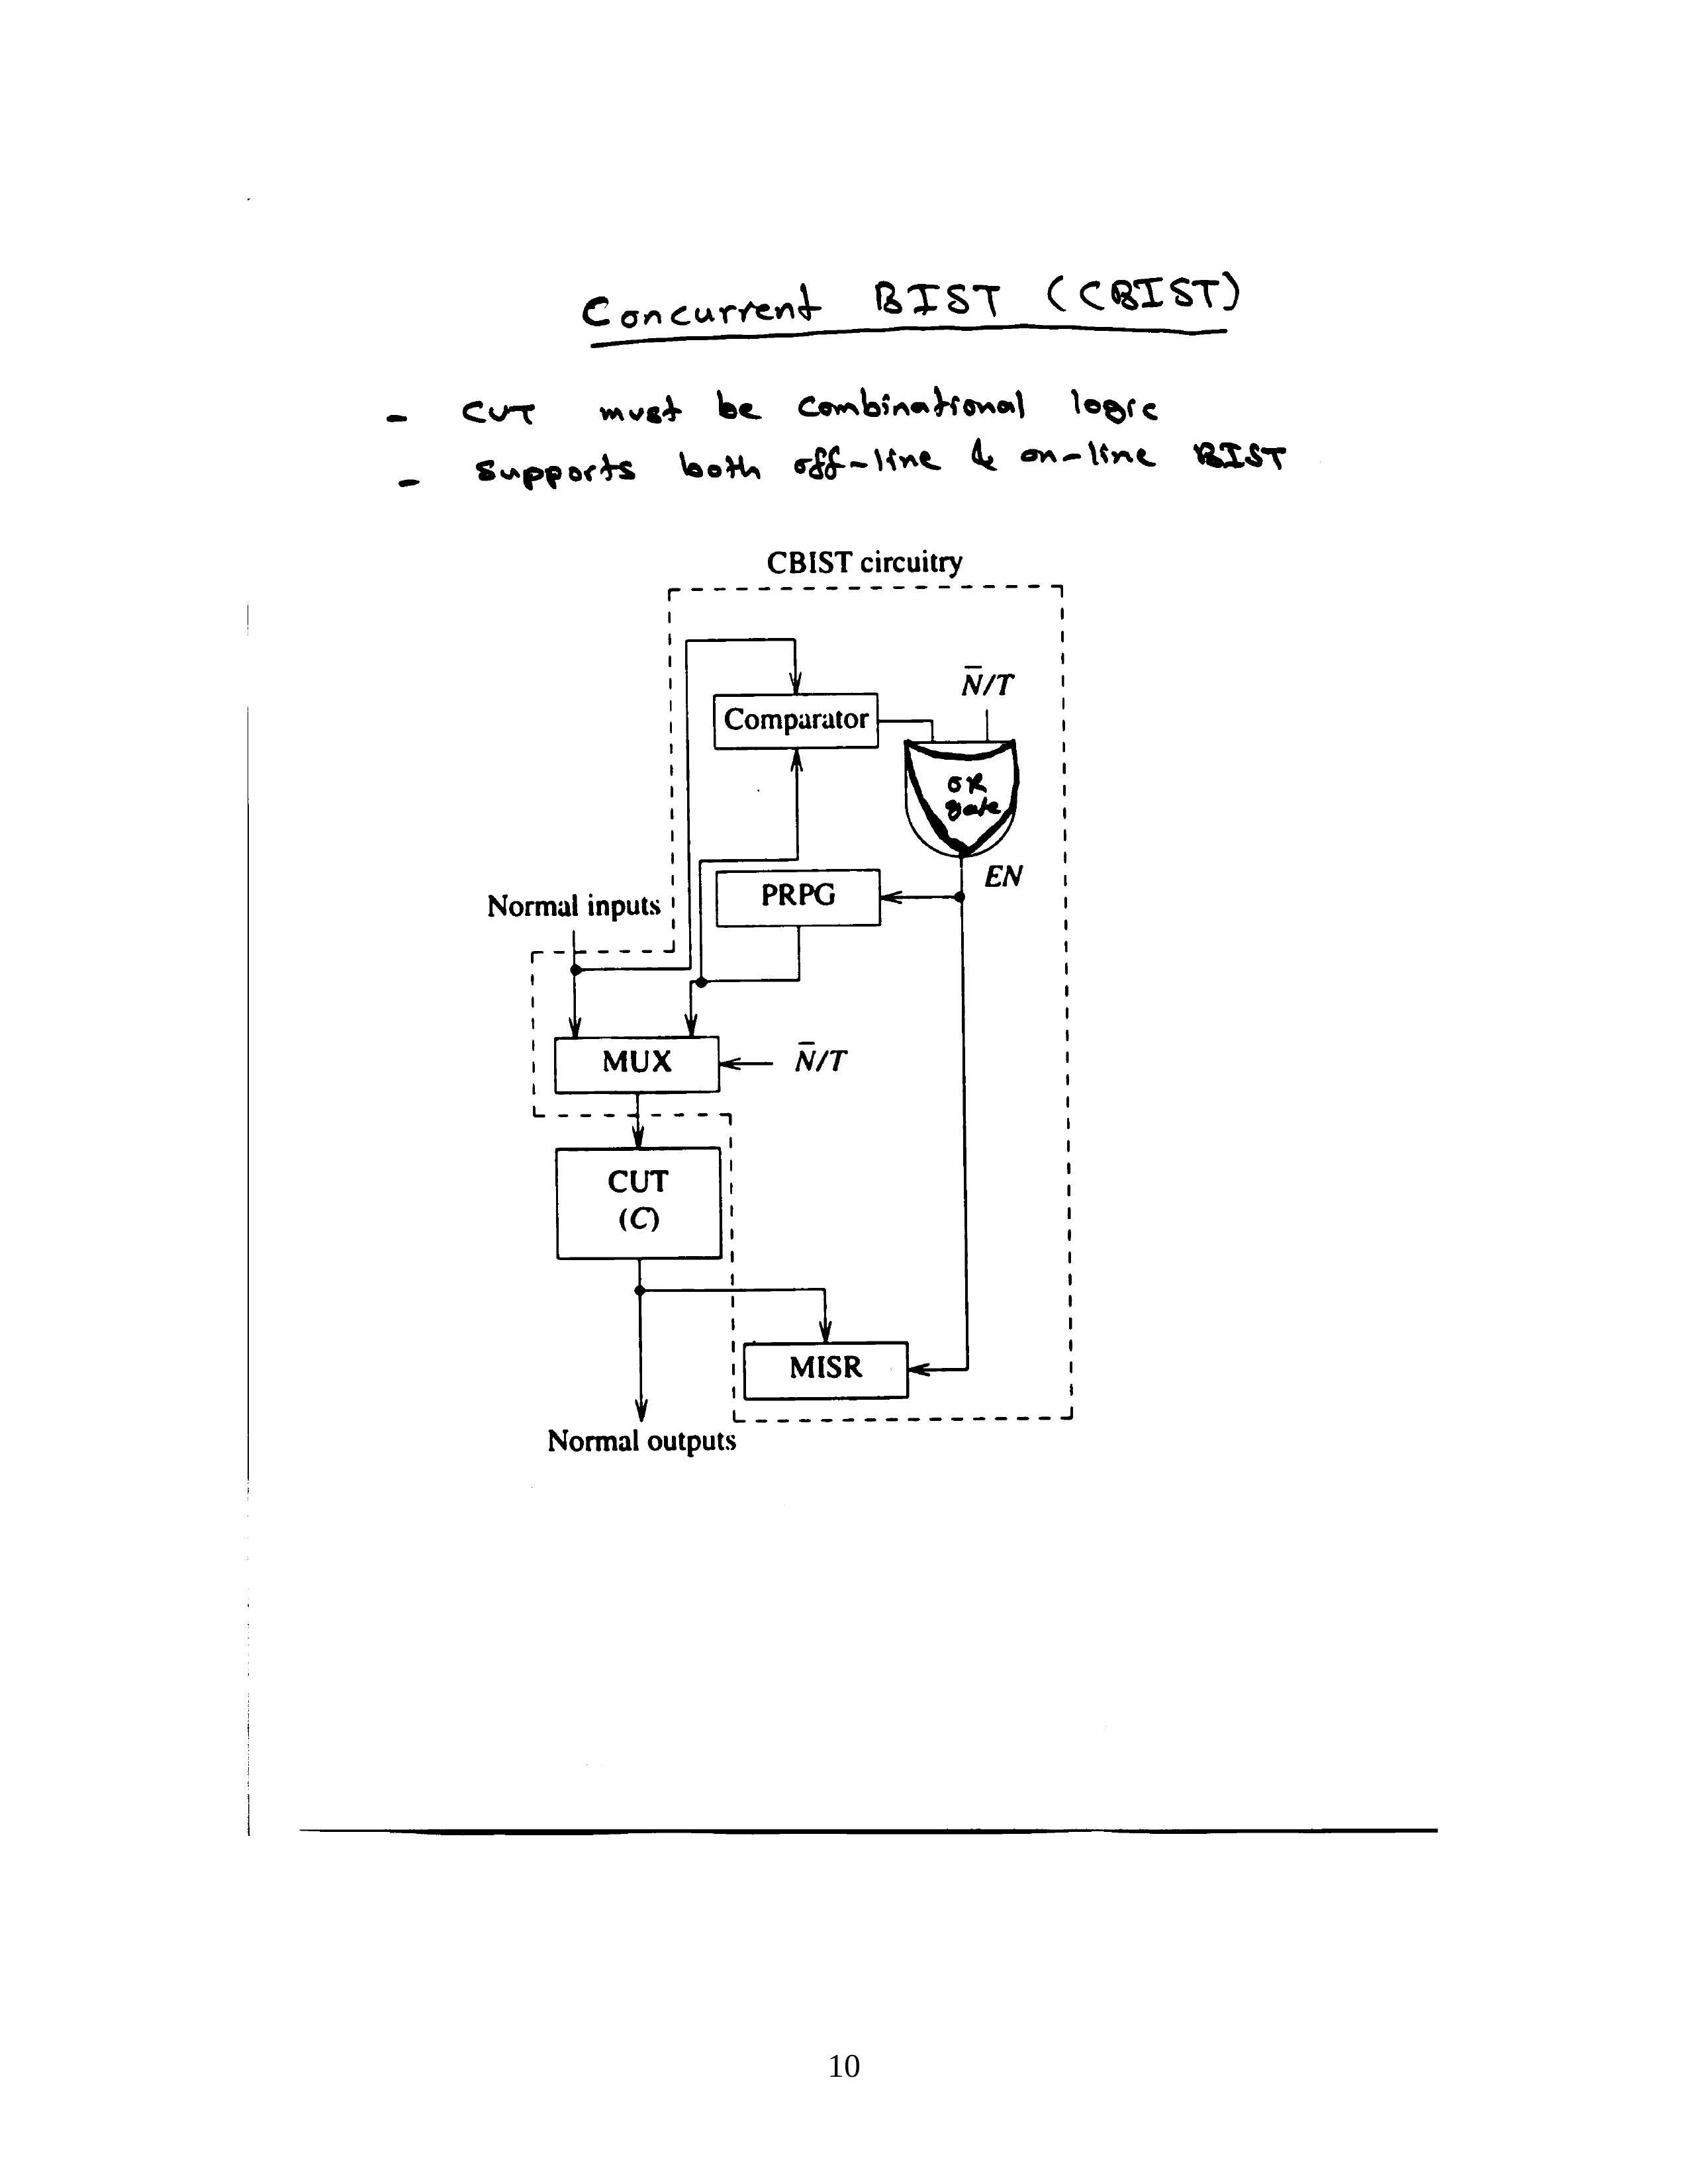 Concurrent BIST (CBIST)
- CUT must be combinational logic
- Supports both off-line & on-line BIST
CBIST circuitry
N̅/T
Comparator
OR
gate
EN
PRPG
Normal inputs
MUX
N̅/T
CUT
(C)
MISR
Normal outputs
10